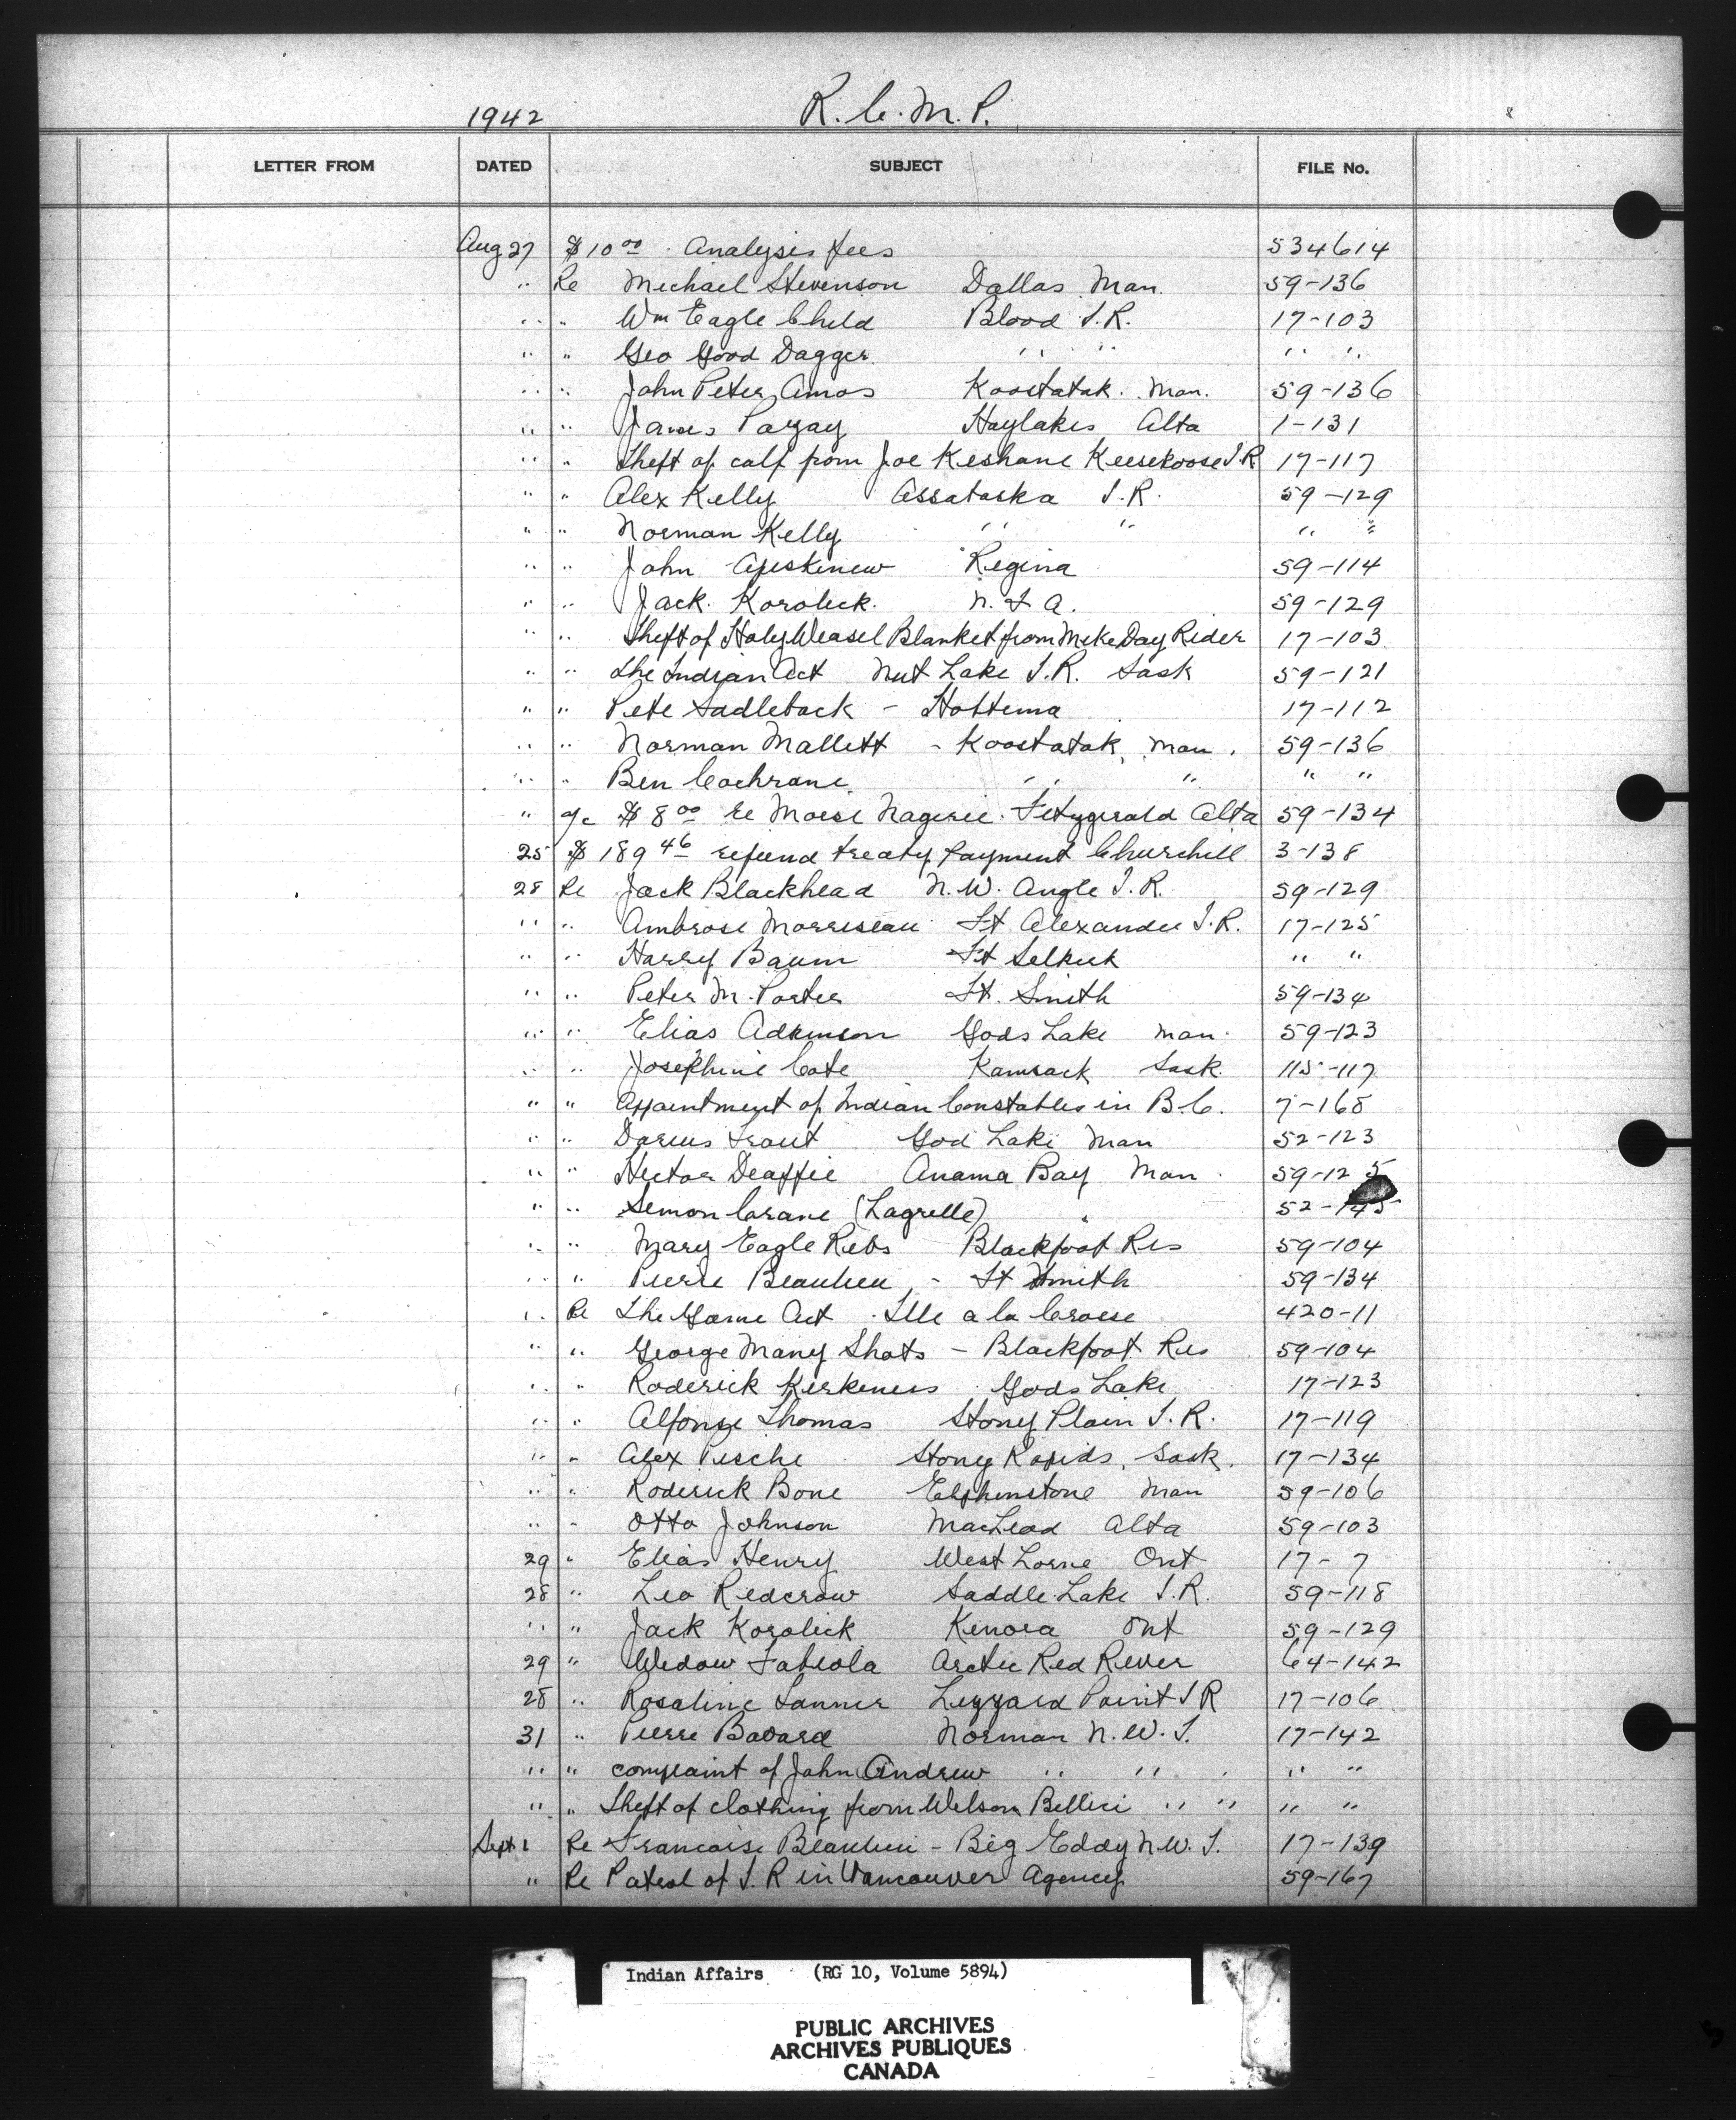 1942 R.C.M.P.
LETTER FROM DATED SUBJECT FILE No.
Aug 27 $10 00 Analysis fees 534614
" Re Michael Stevenson Dallas Man. 59-136
" " Wm Eagle Child Blood I.R. 17-103
" " Geo Good Dagger " " " "
" " John Peter Amos Koostatak Man. 59-136
" " James Pazay Haylakes Alta 1-131
" " Theft of calf from Joe Keshane Keesekoose I.R 17-117
" " Alex Kelly Assabaska I.R. 59-129
" " Norman Kelly " " " "
" " John Apeskinew Regina 59-114
" " Jack Korolick N.F.A. 59-129
" " Theft of Holy Weasel Blanket from Mike Day Rider 17-103
" " The Indian Act Nut Lake I.R. Sask 59-121
" " Pete Sadleback - Hobbema 17-112
" " Norman Mallett - Koostatak, Man. 59-136
" " Ben Cochrane " " " "
" a/c $8 00 re Moise Nagerie Fitzgerald Alta 59-134
25 $189 46 refund treaty payment Churchill 3-138
28 Re Jack Blackhead N.W. Angle I.R. 59-129
" " Ambrose Morriseau Ft Alexander I.R. 17-125
" " Harry Baum Ft Selkirk " "
" " Peter M. Porter Ft. Smith 59-134
" " Elias Adkinson Gods Lake Man. 59-123
" " Josephine Cote Kamsack Sask. 115-117
" " Appointment of Indian Constables in B.C. 7-168
" " Darius Trout God Lake Man 52-123
" " Hector Deaffie Anama Bay Man. 59-125
" " Simon Crane (Lagrelle) 52-145
" " Mary Eagle Ribs Blackfoot Res 59-104
" " Pierre Beaulieu - Ft Smith 59-134
" Re The Game Act Ille a la Crosse 420-11
" " George Many Shots - Blackfoot Res 59-104
" " Roderick Kirkness Gods Lake 17-123
" " Alfonse Thomas Stoney Plain I.R. 17-119
" " Alex Pische Stony Rapids, Sask. 17-134
" " Roderick Bone Elphinstone Man 59-106
" " Otto Johnson MacLeod Alta 59-103
29 " Elias Henry West Lorne Ont 17-7
28 " Leo Redcrow Saddle Lake I.R. 59-118
" " Jack Korolick Kenora Ont 59-129
29 " Widow Fabiola Arctic Red River 64-142
28 " Rosaline Tanner Lizzard Point I R 17-106
31 " Pierre Bavard Norman N.W.T. 17-142
" " complaint of John Andrew " " " "
" " Theft of clothing from Wilson Pellici " " " "
Sept 1 Re Francoise Beaulieu - Big Eddy N.W.T. 17-139
" Re Patrol of I.R in Vancouver Agency 59-167
Indian Affairs (RG 10, Volume 5894)
PUBLIC ARCHIVES
ARCHIVES PUBLIQUES
CANADA